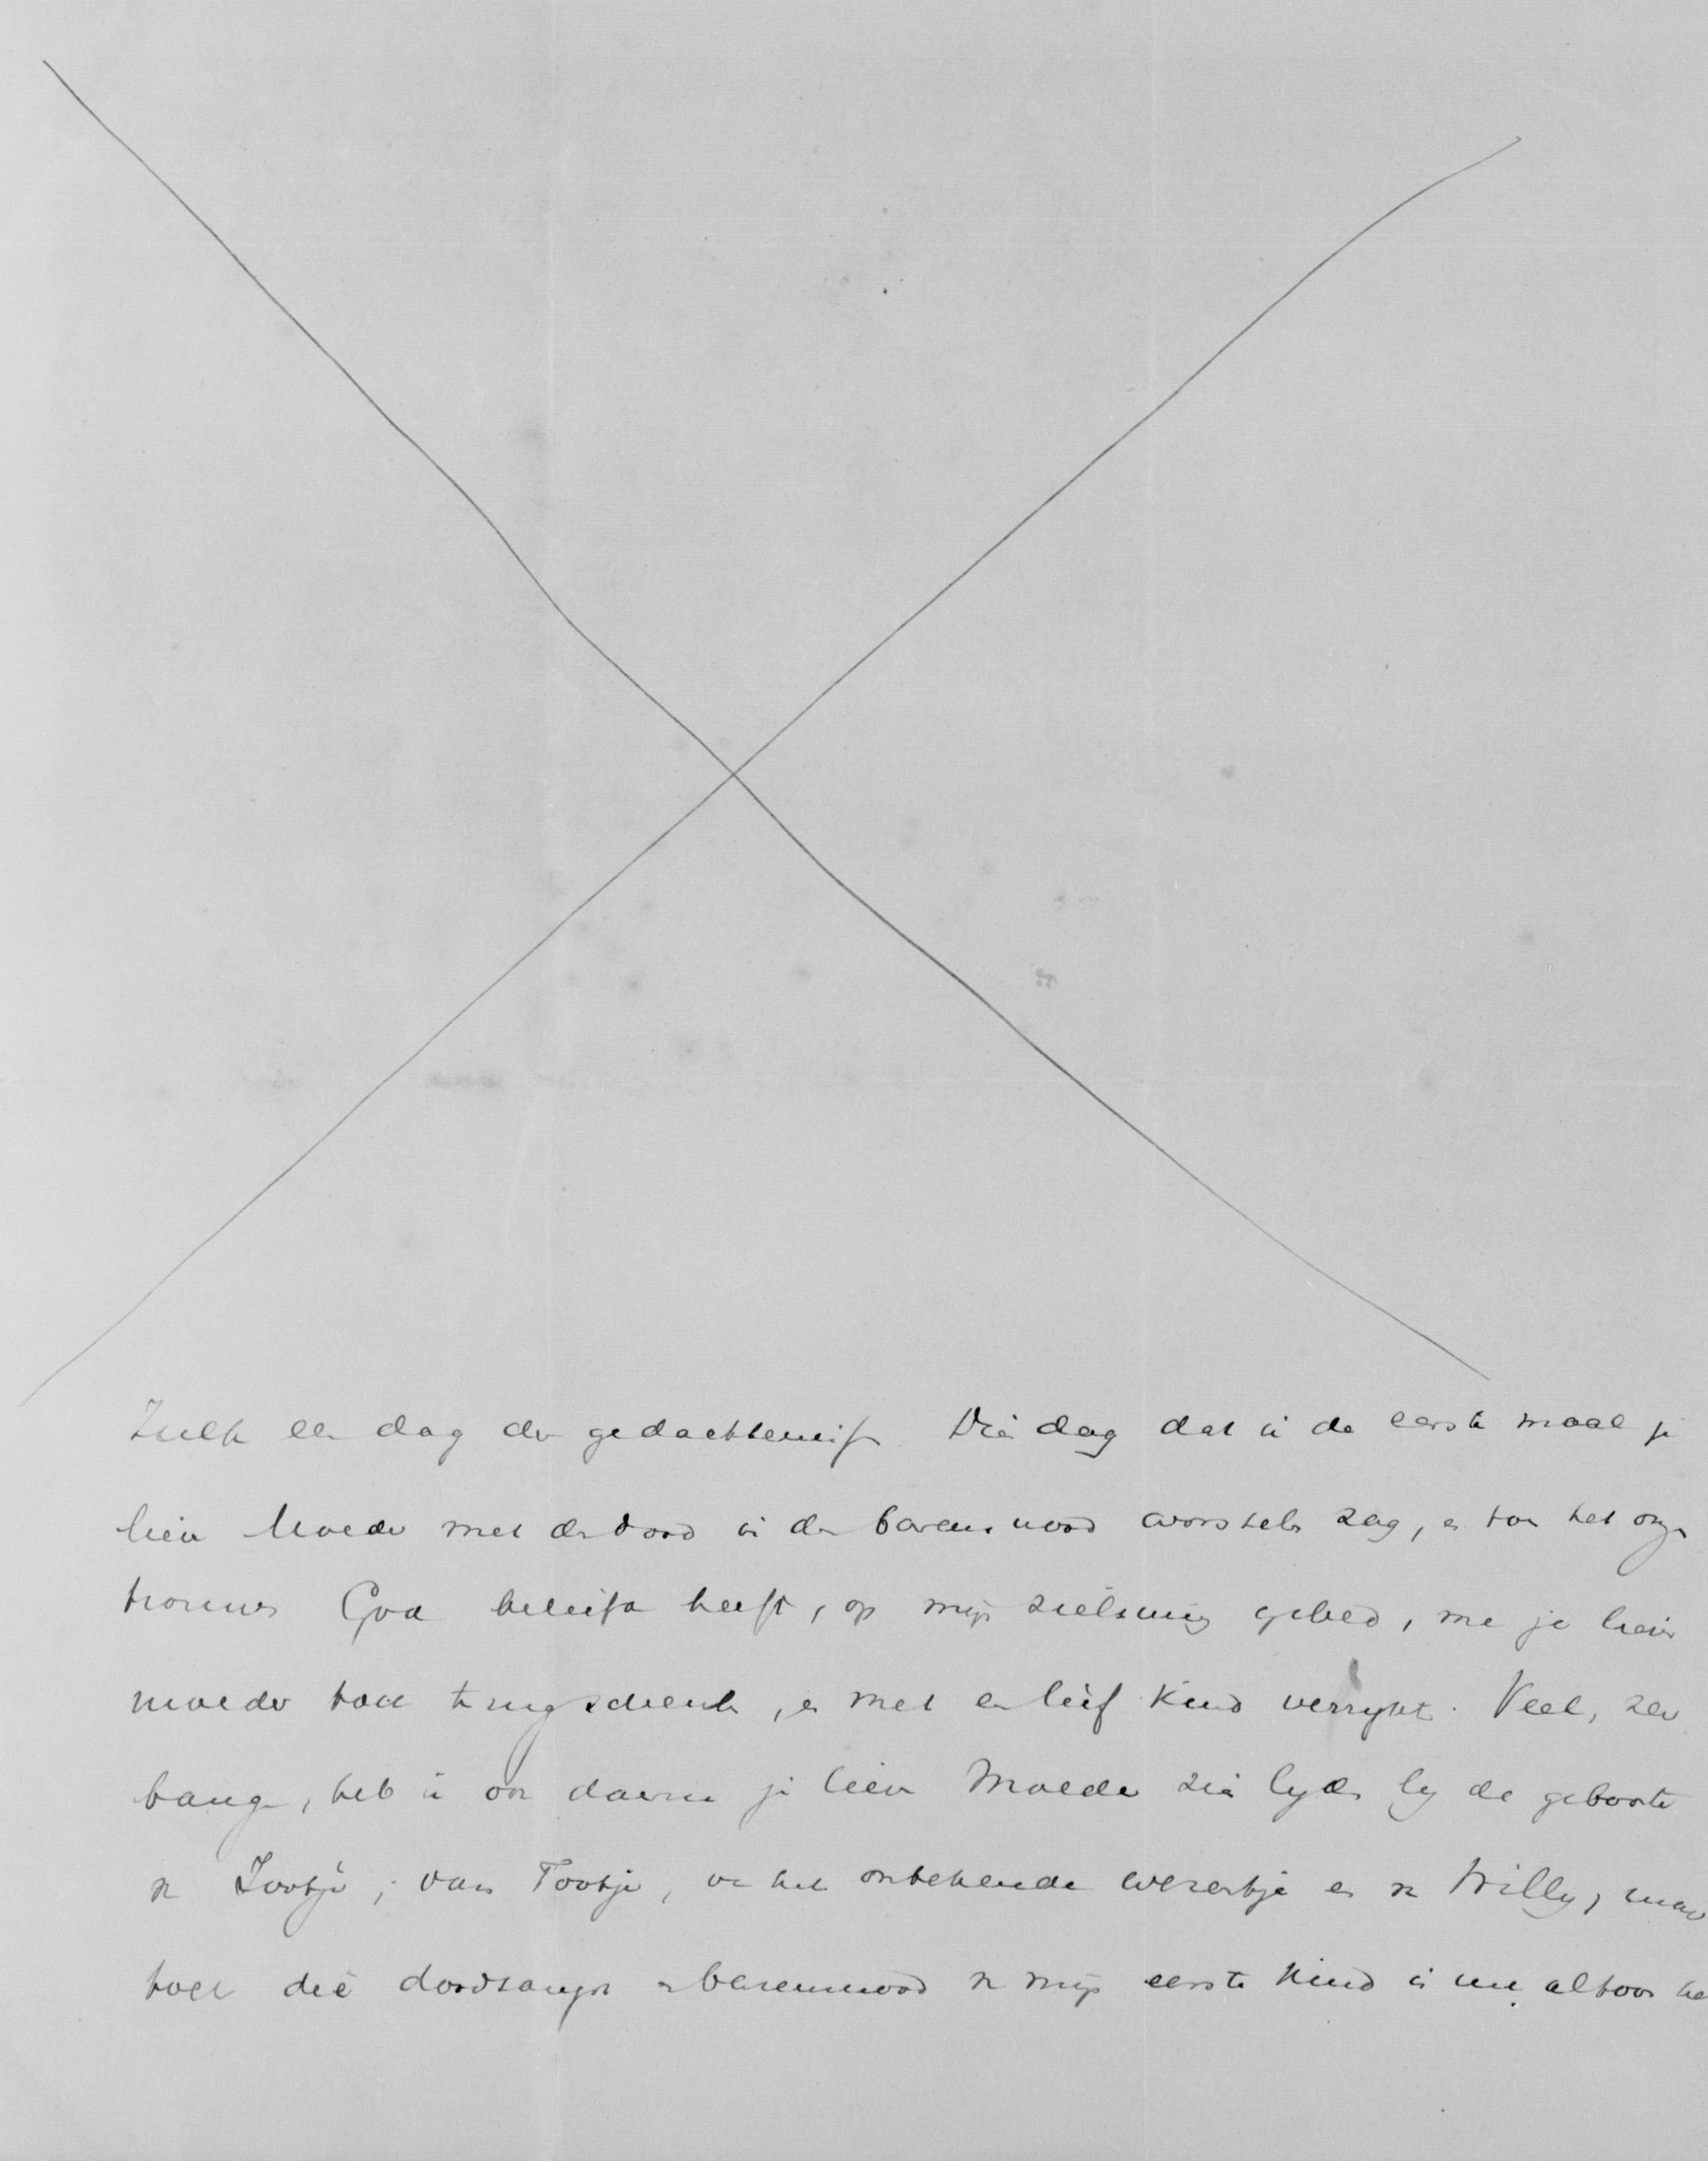 Zulk een dag der gedachtenis. Die dag dat ik de eerste maal je
lieve Moeder met de dood in den barensnood worstelen zag, en toen het onze
trouwe God beliefd heeft, op mijn zielsinnig gebed, me je lieve
moeder toch terugschenk, en met een lief kind verrykt. Veel, zeer
bange, heb ik ook daarna je lieve Moeder zien lyden by de geboorte
van Jootje, van Tootje, van het onbekende wezentje en van Willy, maar
toch die doodsangst en barensnood van mijn eerste kind is me altoos